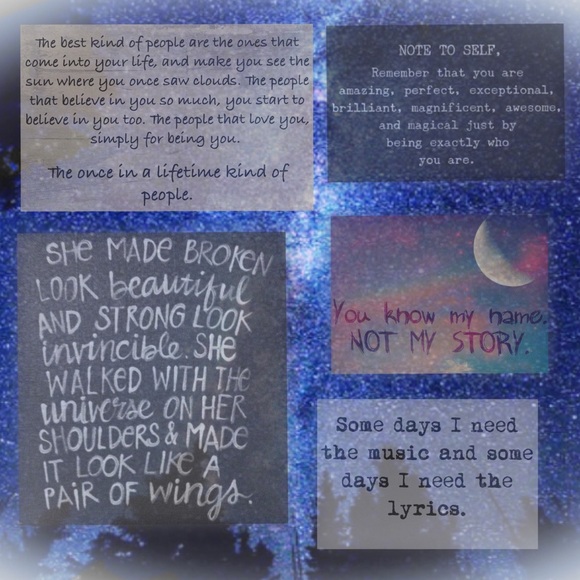 The best kind of people are the ones that
come into your life, and make you see the
sun where you once saw clouds. The people
that believe in you so much, you start to
believe in you too. The people that love you,
simply for being you.
The once in a lifetime kind of
people.
NOTE TO SELF,
Remember that you are
amazing, perfect, exceptional,
brilliant, magnificent, awesome,
and magical just by
being exactly who
you are.
SHE MADE BROKEN
LOOK beautiful
AND STRONG LOOK
invincible. SHE
WALKED WITH THE
universe ON HER
SHOULDERS & MADE
IT LOOK LIKE A
PAIR OF wings.
You know my name.
NOT MY STORY.
Some days I need
the music and some
days I need the
lyrics.